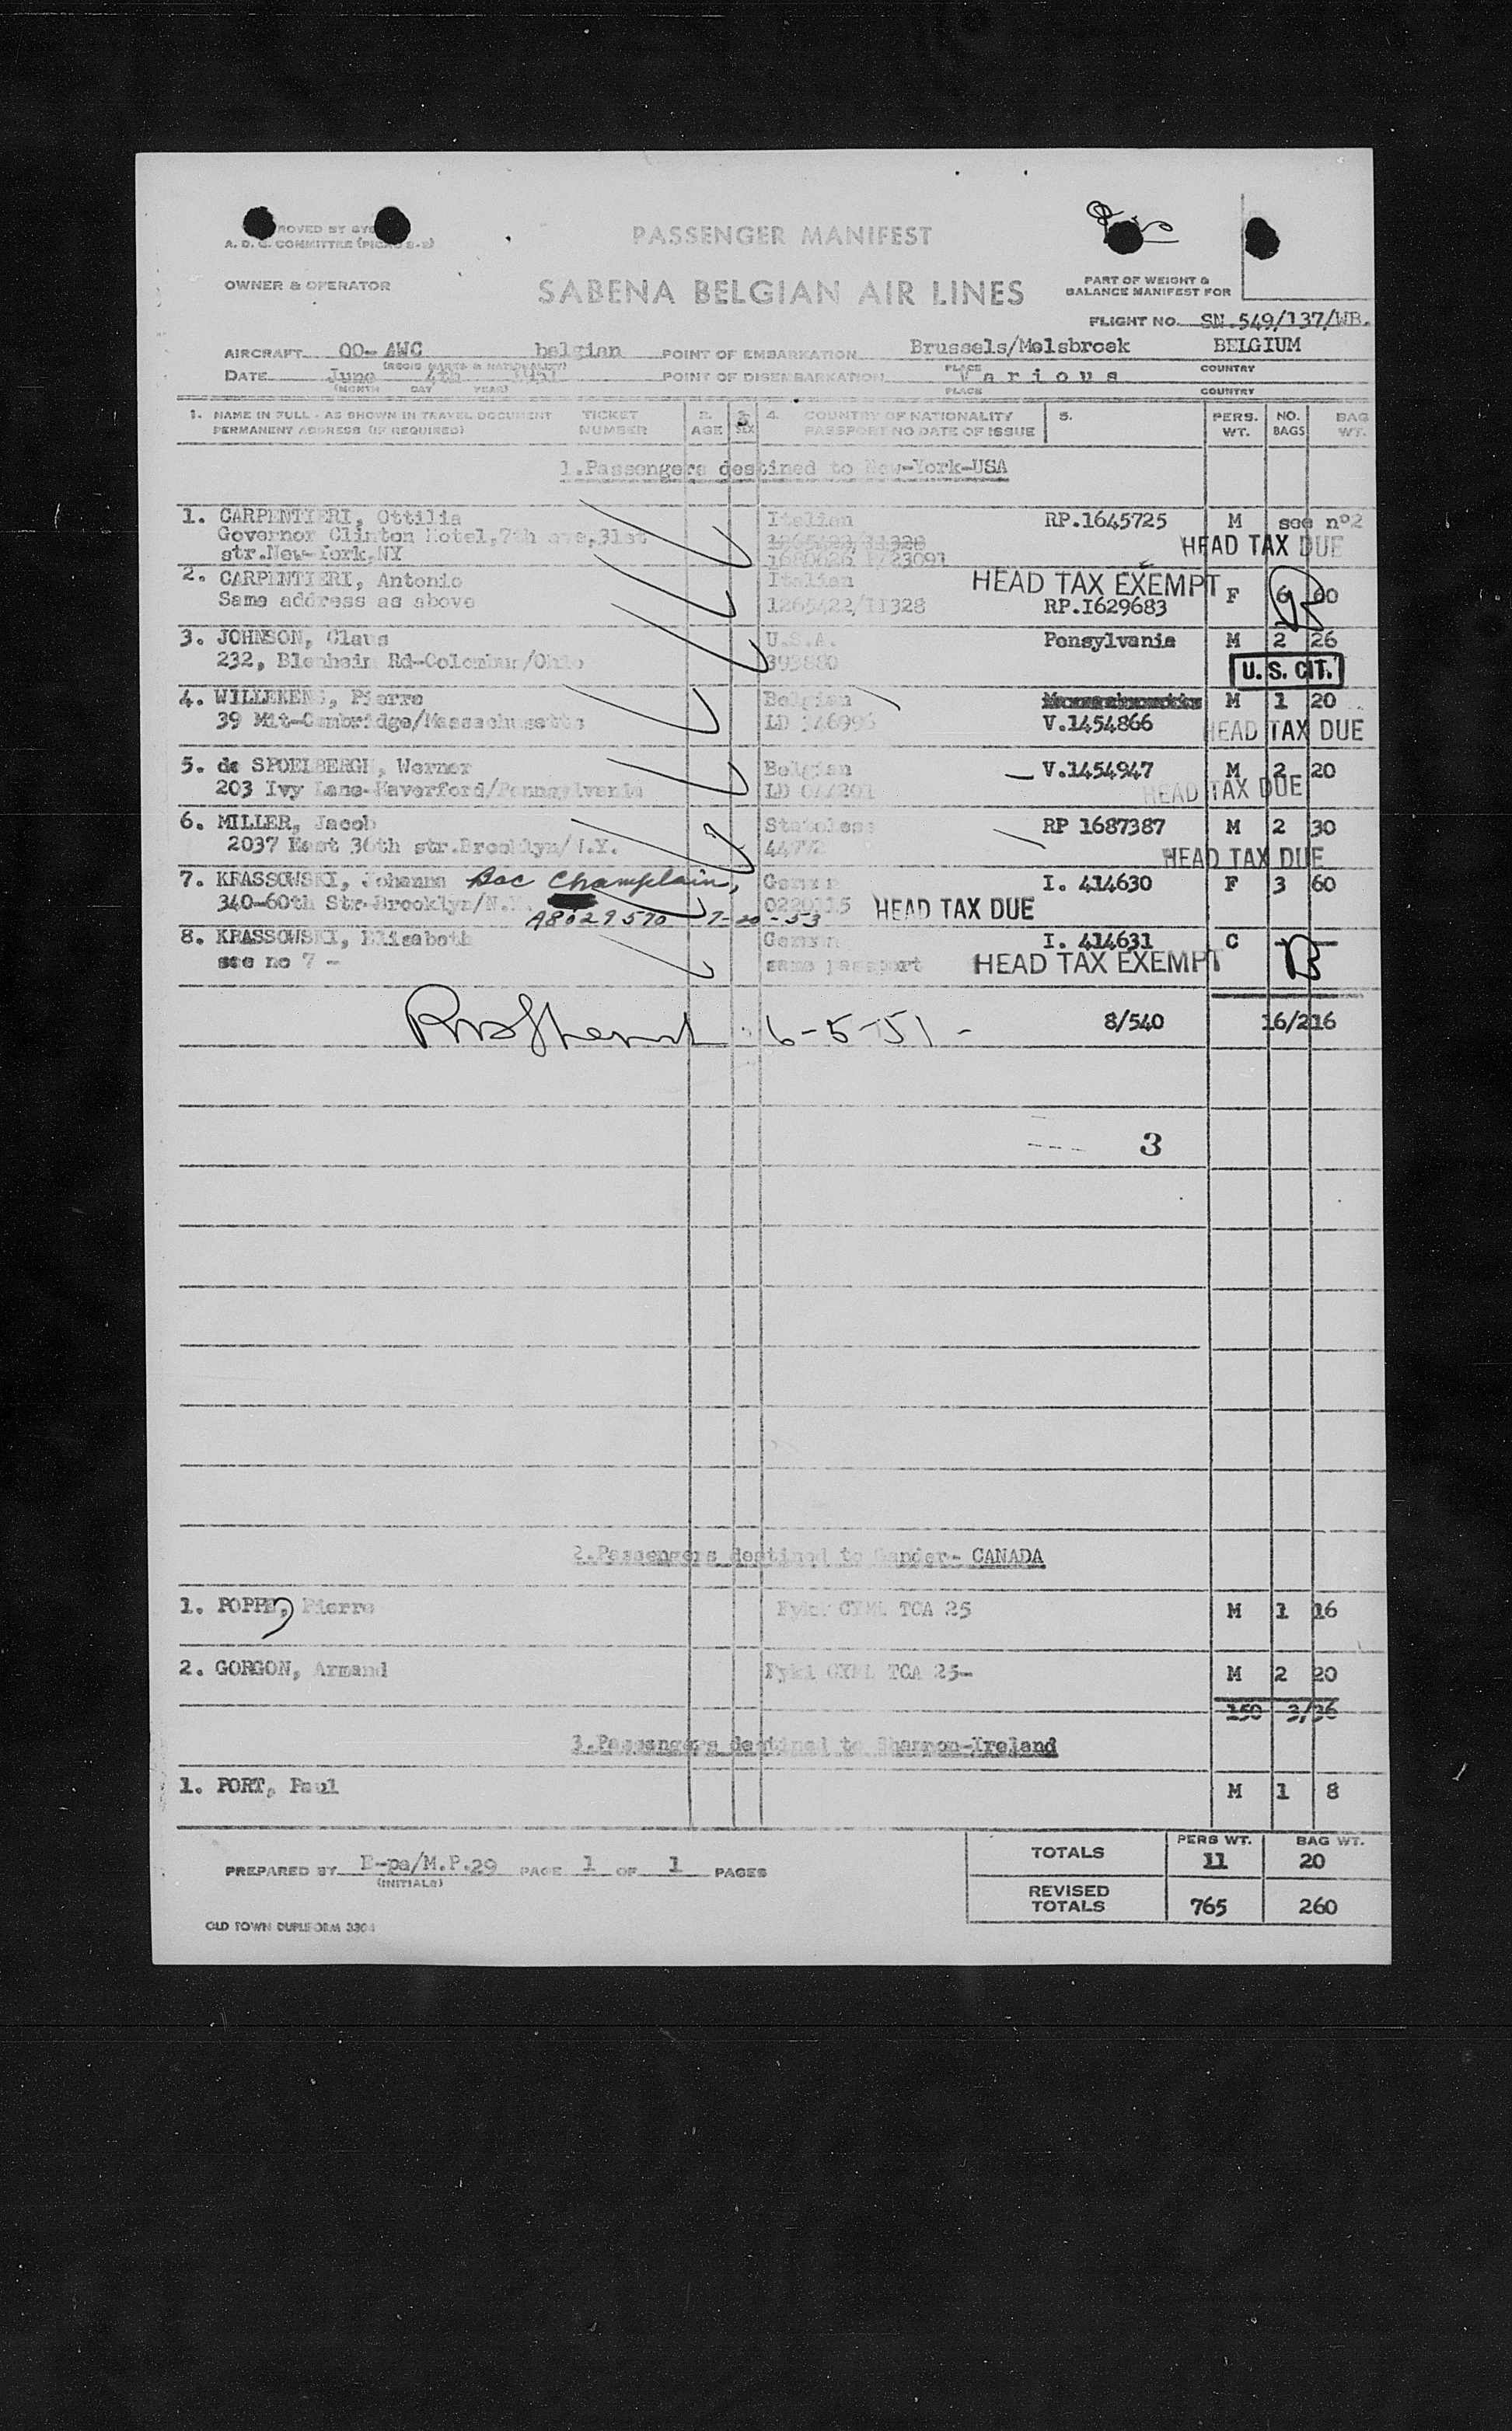 PASSENGER MANIFEST
A. D. C. COMMITTEE
OWNER & OPERATOR
SABENA BELGIAN AIR LINES
PART OF WEIGHT &
BALANCE MANIFEST FOR
FLIGHT NO. SN.549/137/WB.
AIRCRAFT OO-AWC belgian POINT OF EMBARKATION Brussels/Melsbroek BELGIUM
(REGIS MARKS & NATIONALITY) PLACE COUNTRY
DATE June 4th 1951 POINT OF DISEMBARKATION Various
(MONTH DAY YEAR) PLACE COUNTRY
1. NAME IN FULL - AS SHOWN IN TRAVEL DOCUMENT TICKET 2. 3. 4. COUNTRY OF NATIONALITY 5. PERS. NO. BAG
PERMANENT ADDRESS (IF REQUIRED) NUMBER AGE SEX PASSPORT NO DATE OF ISSUE WT. BAGS WT.
1.Passengers destined to New-York-USA
1. CARPENTIERI, Ottilia Italian RP.1645725 M see nº2
Governor Clinton Hotel,7th ave,31st 1265422/II328 HEAD TAX DUE
str.New-York,NY 1680626 I/23091
2. CARPENTIERI, Antonio Italian HEAD TAX EXEMPT F 6 60
Same address as above 1265422/II328 RP.I629683
3. JOHNSON, Claus U.S.A. Pensylvania M 2 26
232, Blenheim Rd-Colombus/Ohio 393880 U. S. CIT.
4. WILLEKENS, Pierre Belgian M 1 20
39 Mit-Cambridge/Massachusetts LD 346996 V.1454866 HEAD TAX DUE
5. de SPOELBERGH, Werner Belgian V.1454947 M 2 20
203 Ivy Lane-Haverford/Pennsylvania LD HEAD TAX DUE
6. MILLER, Jacob Stateless RP 1687387 M 2 30
2037 East 36th str.Brooklyn/N.Y. 44772 HEAD TAX DUE
7. KRASSOWSKI, Johanna Roc Champlain, German I. 414630 F 3 60
340-60th Str-Brooklyn/N.Y. A8029570 7-20-53 0220115 HEAD TAX DUE
8. KRASSOWSKI, Elisabeth German I. 414631 C
see no 7 - same passport HEAD TAX EXEMPT
6-5-51- 8/540 16/216
3
2.Passengers destined to Gander- CANADA
1. POPPE, Pierre CYML TCA 25 M 1 16
2. GORGON, Armand Fykl CYML TCA 25- M 2 20
150 3/36
3.Passengers destined to Shannon-Ireland
1. PORT, Paul M 1 8
TOTALS PERS WT. BAG WT.
11 20
PREPARED BY B-pa/M.P.29 PAGE 1 OF 1 PAGES
(INITIALS)
REVISED TOTALS 765 260
OLD TOWN DUPLIFORM 3304